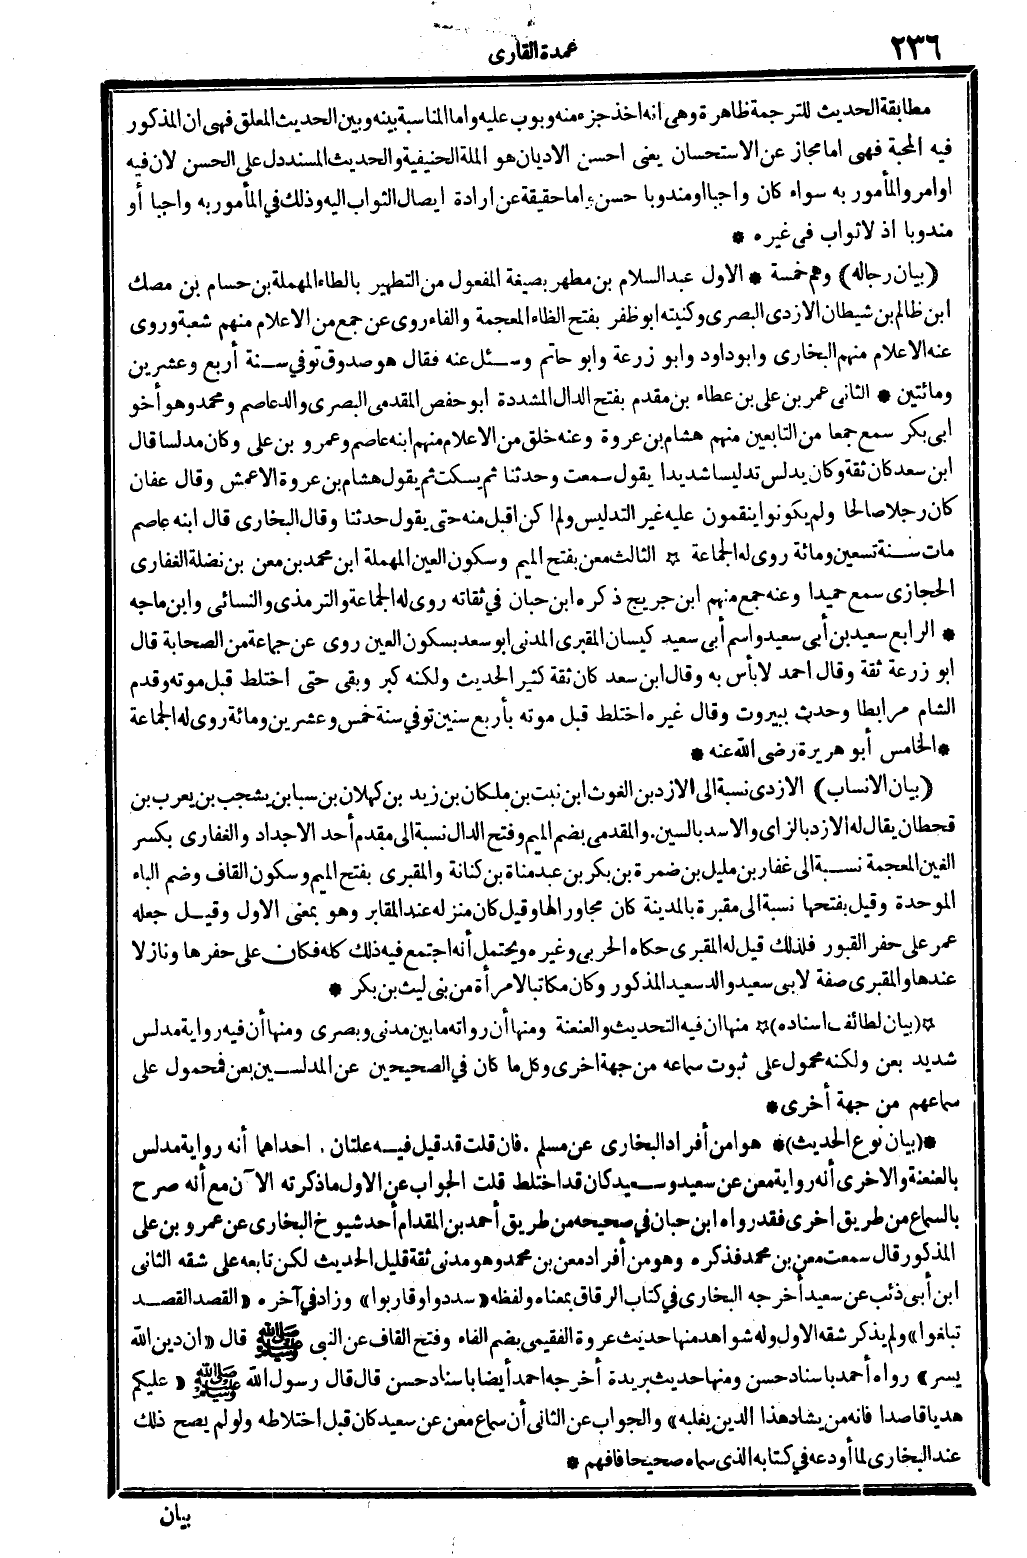 ٢٣٦
عمدة القارى
مطابقة الحديث للترجمة ظاهرة وهى انه اخذ جزء منه وبوب عليه واما المناسبة بينه وبين الحديث المعلق فهى ان المذكور
فيه المحبة فهى اما مجاز عن الاستحسان يعنى احسن الاديان هو الملة الحنيفية والحديث المسند دل على الحسن لان فيه
اوامر والمأمور به سواء كان واجبا او مندوبا حسن واما حقيقة عن ارادة ايصال الثواب اليه وذلك في المأمور به واجبا أو
مندوبا اذ لا ثواب فى غيره *
(بيان رجاله) وهم خمسة * الاول عبد السلام بن مطهر بصيغة المفعول من التطهير بالطاء المهملة بن حسام بن مصك
ابن ظالم بن شيطان الازدى البصرى وكنيته ابو ظفر بفتح الظاء المعجمة والفاء روى عن جمع من الاعلام منهم شعبة وروى
عنه الاعلام منهم البخارى وابو داود وابو زرعة وابو حاتم وسئل عنه فقال هو صدوق توفي سنة أربع وعشرين
ومائتين * الثانى عمر بن على بن عطاء بن مقدم بفتح الدال المشددة ابو حفص المقدمى البصرى والد عاصم ومحمد وهو أخو
ابى بكر سمع جمعا من التابعين منهم هشام بن عروة وعنه خلق من الاعلام منهم ابنه عاصم وعمرو بن على وكان مدلسا قال
ابن سعد كان ثقة وكان يدلس تدليسا شديدا يقول سمعت وحدثنا ثم يسكت ثم يقول هشام بن عروة الاعمش وقال عفان
كان رجلا صالحا ولم يكونوا ينقمون عليه غير التدليس ولم اكن اقبل منه حتى يقول حدثنا وقال البخارى قال ابنه عاصم
مات سنة تسعين ومائة روى له الجماعة ☆ الثالث معن بفتح الميم وسكون العين المهملة ابن محمد بن معن بن نضلة الغفارى
الحجازى سمع حميدا وعنه جمع منهم ابن جريج ذكره ابن حبان في ثقاته روى له الجماعة والترمذى والنسائى وابن ماجه
* الرابع سعيد بن أبى سعيد واسم أبى سعيد كيسان المقبرى المدنى ابو سعد بسكون العين روى عن جماعة من الصحابة قال
ابو زرعة ثقة وقال احمد لا بأس به وقال ابن سعد كان ثقة كثير الحديث ولكنه كبر وبقى حتى اختلط قبل موته وقدم
الشام مرابطا وحدث ببيروت وقال غيره اختلط قبل موته بأربع سنين توفي سنة خمس وعشرين ومائة روى له الجماعة
* الخامس أبو هريرة رضى الله عنه *
(بيان الانساب) الازدى نسبة الى الازد بن الغوث ابن نبت بن ملكان بن زيد بن كهلان بن سبا بن يشجب بن يعرب بن
قحطان يقال له الازد بالزاى والاسد بالسين. والمقدمى بضم الميم وفتح الدال نسبة الى مقدم أحد الاجداد والغفارى بكسر
الغين المعجمة نسبة الى غفار بن مليل بن ضمرة بن بكر بن عبد مناة بن كنانة والمقبرى بفتح الميم وسكون القاف وضم الباء
الموحدة وقيل بفتحها نسبة الى مقبرة بالمدينة كان مجاورا لها وقيل كان منزله عند المقابر وهو بمعنى الاول وقيل جعله
عمر على حفر القبور فلذلك قيل له المقبرى حكاه الحربى وغيره ويحتمل أنه اجتمع فيه ذلك كله فكان على حفرها ونازلا
عندها والمقبرى صفة لابى سعيد والد سعيد المذكور وكان مكاتبا لامرأة من بنى ليث بن بكر *
☆(بيان لطائف اسناده)☆ منها ان فيه التحديث والعنعنة ومنها أن رواته ما بين مدنى وبصرى ومنها أن فيه رواية مدلس
شديد بعن ولكنه محمول على ثبوت سماعه من جهة اخرى وكل ما كان في الصحيحين عن المدلسين بعن فمحمول على
سماعهم من جهة أخرى*
*(بيان نوع الحديث)* هو امن أفراد البخارى عن مسلم . فان قلت قد قيل فيه علتان . احداها أنه رواية مدلس
بالعنعنة والاخرى أنه رواية معن عن سعيد وسعيد كان قد اختلط قلت الجواب عن الاول ما ذكرته الآن مع أنه صرح
بالسماع من طريق اخرى فقد رواه ابن حبان في صحيحه من طريق أحمد بن المقدام أحد شيوخ البخارى عن عمرو بن على
المذكور قال سمعت معن بن محمد فذكره وهو من أفراد معن بن محمد وهو مدنى ثقة قليل الحديث لكن تابعه على شقه الثانى
ابن أبى ذئب عن سعيد أخرجه البخارى في كتاب الرقاق بمعناه ولفظه «سددوا وقاربوا» وزاد في آخره «القصد القصد
تبلغوا» ولم يذكر شقه الاول وله شواهد منها حديث عروة الفقيمى بضم الفاء وفتح القاف عن النبى ﷺ قال «ان دين الله
يسر» رواه أحمد باسناد حسن ومنها حديث بريدة أخرجه احمد أيضا باسناد حسن قال قال رسول الله ﷺ «عليكم
هديا قاصدا فانه من يشاد هذا الدين يغلبه» والجواب عن الثانى أن سماع معن عن سعيد كان قبل اختلاطه ولو لم يصح ذلك
عند البخارى لما أودعه في كتابه الذى سماه صحيحا فافهم *
بيان